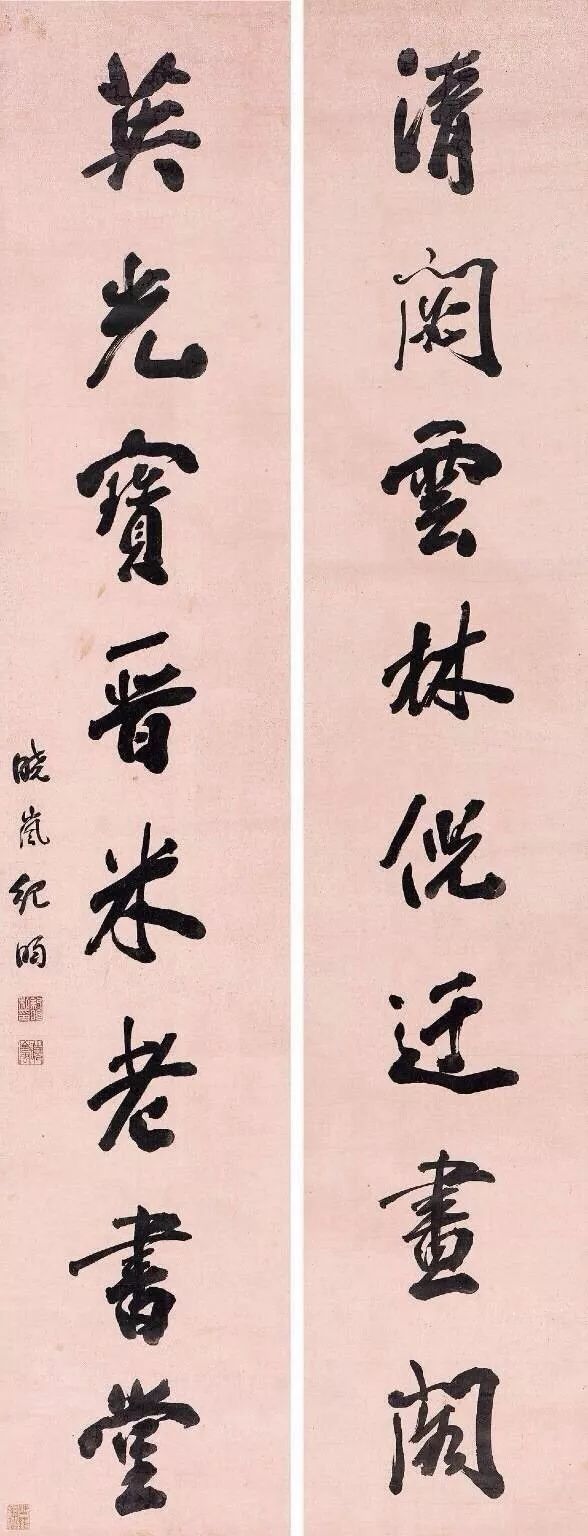 清閟雲林倪迂畫閣
英光寶晉米老書堂
曉嵐紀昀